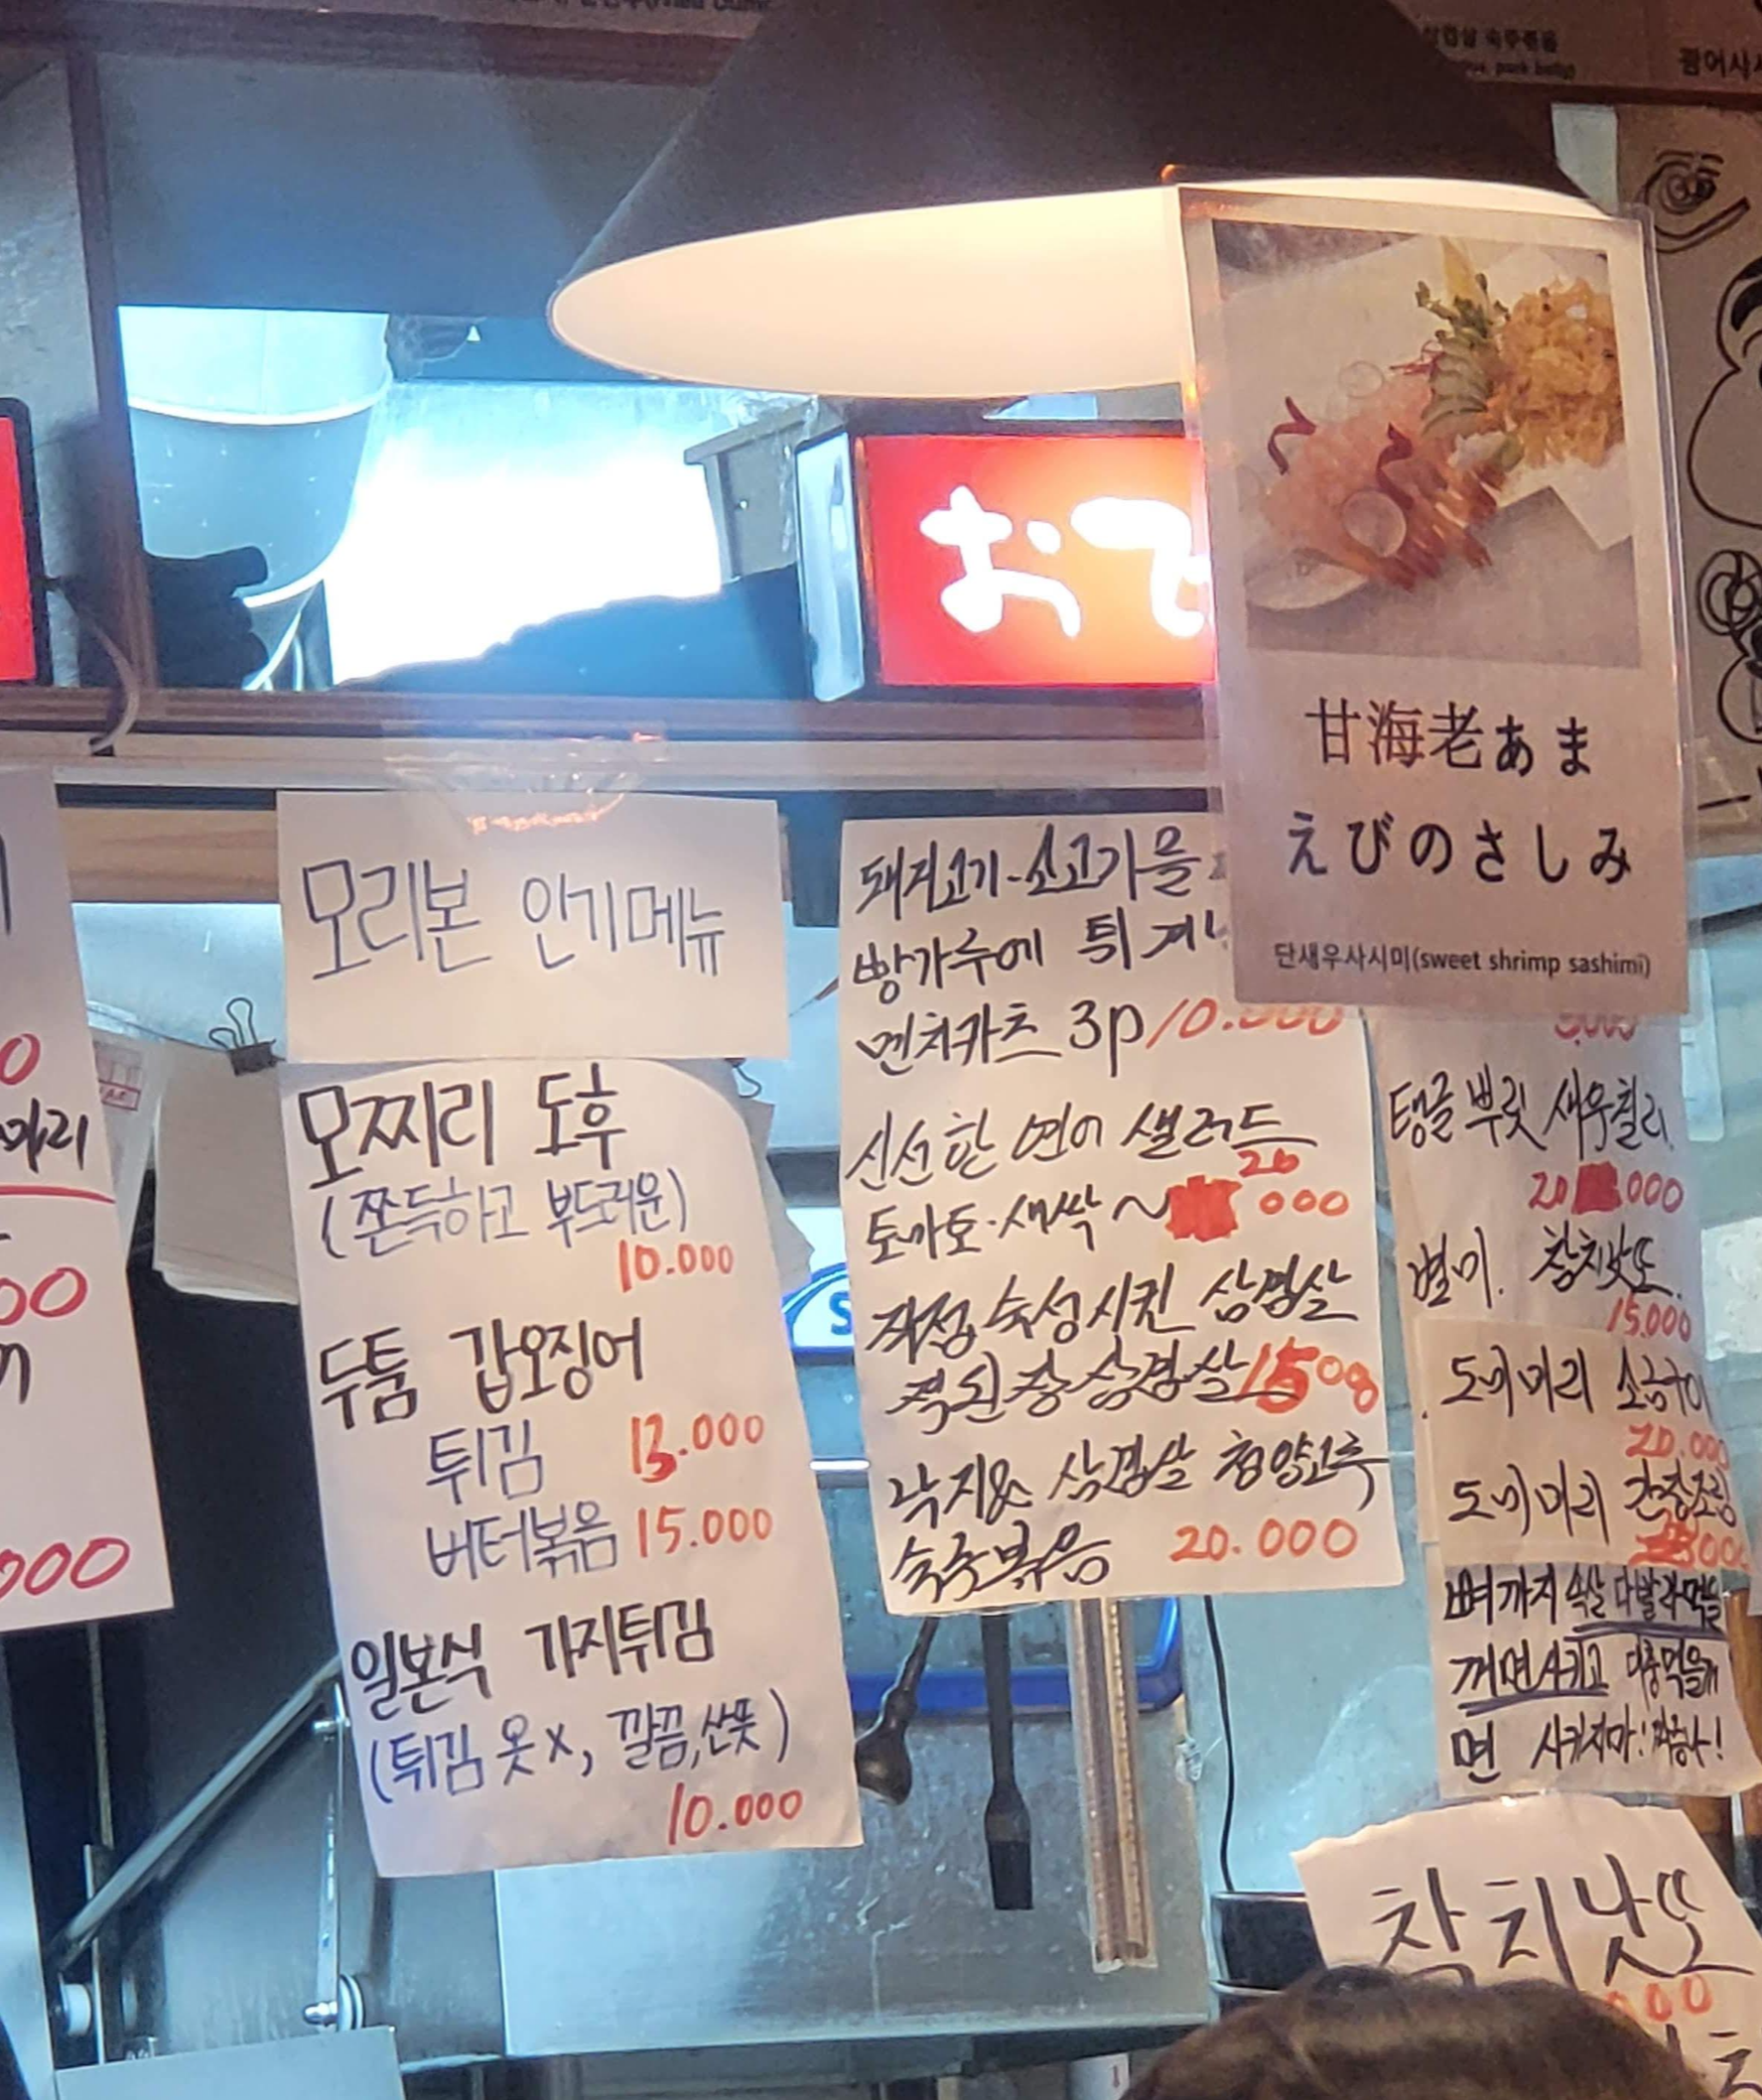 삼겹살 숙주볶음
광어사시
おで
甘海老あま
えびのさしみ
단새우사시미(sweet shrimp sashimi)
모리본 인기메뉴
모찌리 도후
(쫀득하고 부드러운)
10.000
두툼 갑오징어
튀김 13.000
버터볶음 15.000
일본식 가지튀김
(튀김 옷x, 깔끔,산뜻)
10.000
돼지고기-소고기을
빵가루에 튀겨낸
멘치카츠 3p/10.000
신선한 연어 샐러드
토마토.새싹~ 20 000
직접 숙성시킨 삼겹살
된장삼겹살 150g
낙지& 삼겹살 청양고추
숙주볶음 20.000
탱글뿌릿 새우칠리
20 000
별미. 참치낫또.
15.000
도미머리 소금구이
20.000
도미머리 간장조림
000
뼈까지 속살 다발라먹을
꺼면시키고 대충먹을꺼
면 시키지마!
참치낫또
000